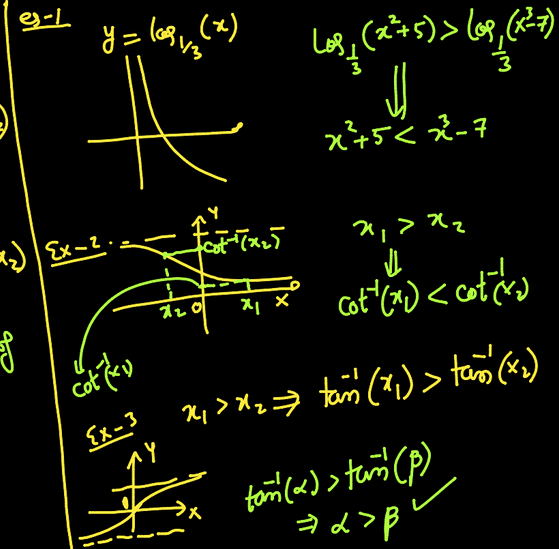 es-1
y = log_{1/3}(x)
log_{1/3}(x²+5) > log_{1/3}(x³-7)
⇓
x²+5 < x³-7
x₂)
Ex-2
Y
cot⁻¹(x₂)
x₂ O x₁ X
cot⁻¹(x₁)
x₁ > x₂
⇓
cot⁻¹(x₁) < cot⁻¹(x₂)
x₁ > x₂ ⇒ tan⁻¹(x₁) > tan⁻¹(x₂)
Ex-3
Y
0
X
tan⁻¹(α) > tan⁻¹(β)
⇒ α > β ✓